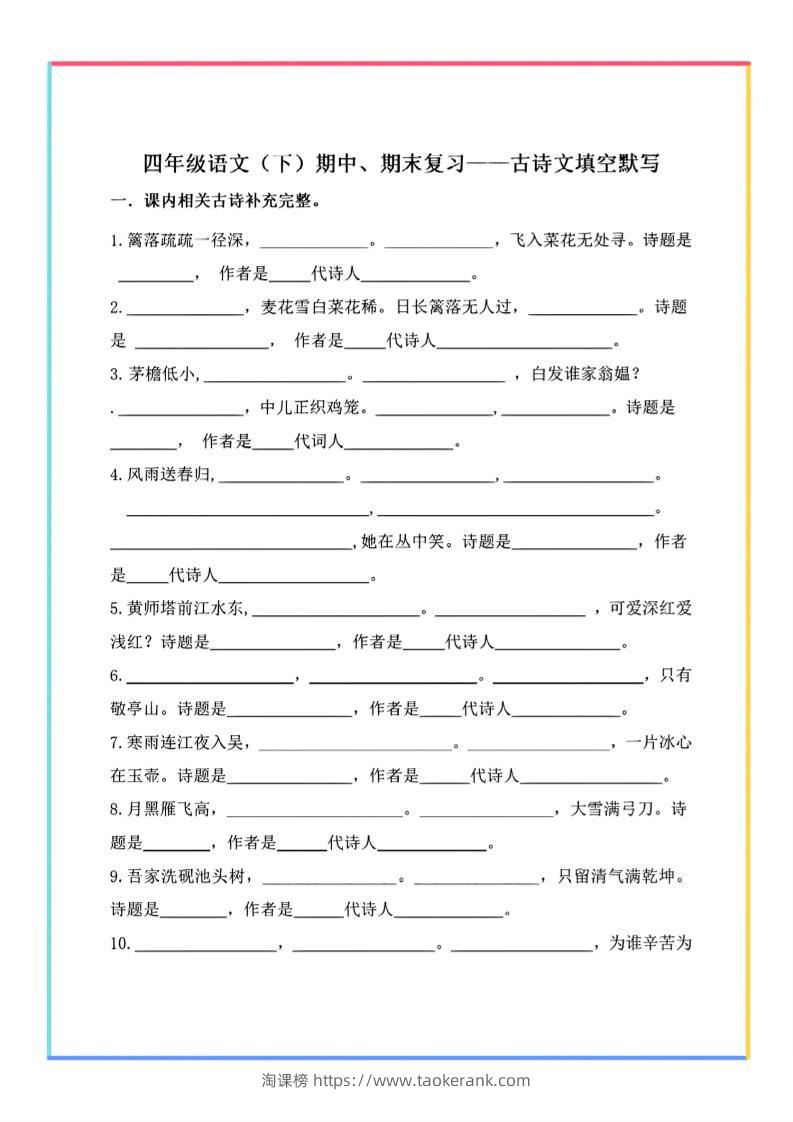 四年级语文（下）期中、期末复习——古诗文填空默写
一．课内相关古诗补充完整。
1.篱落疏疏一径深，_____________。_____________，飞入菜花无处寻。诗题是
_________， 作者是_____代诗人_____________。
2.______________，麦花雪白菜花稀。日长篱落无人过，_____________。诗题
是 ________________， 作者是_____代诗人_____________________。
3. 茅檐低小,_________________。_________________ ，白发谁家翁媪？
._______________，中儿正织鸡笼。______________,_____________。诗题是
________， 作者是_____代词人_____________。
4.风雨送春归,_______________。________________,__________________。
_____________________________,_________________________________。
_____________________________,她在丛中笑。诗题是_______________，作者
是_____代诗人__________________。
5.黄师塔前江水东,____________________。__________________ ，可爱深红爱
浅红？诗题是_______________，作者是_____代诗人_______________。
6.____________________，____________________。__________________，只有
敬亭山。诗题是_______________，作者是_____代诗人_____________。
7.寒雨连江夜入吴，_______________________。_________________，一片冰心
在玉壶。诗题是_______________，作者是______代诗人_________________。
8.月黑雁飞高，_____________________。________________，大雪满弓刀。诗
题是________，作者是______代诗人_____________。
9.吾家洗砚池头树，________________。_______________，只留清气满乾坤。
诗题是________，作者是______代诗人_____________。
10._________________，_________________。_________________，为谁辛苦为
淘课榜 https://www.taokerank.com